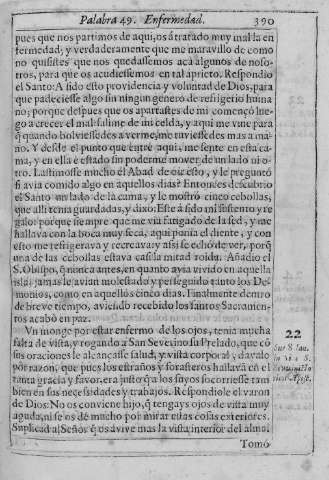 Palabra 49. Enfermedad. 390
pues que nos partimos de aqui, os á tratado muy mal la en
fermedad; y verdaderamente que me maravillo de como
no quisistes que nos quedassemos acà algunos de noso-
tros, para que os acudiessemos en tal aprieto. Respondio
el Santo: A sido esto providencia y voluntad de Dios, para
que padeciesse algo sin ningun genero de refrigerio huma
no; porque despues que os apartastes de mi començò lue-
go a crecer el mal. Salime de mi celda, y aqui me vine para
q̃ quando bolviessedes a verme, me tuviessedes mas a ma-
no. Y desde el punto que entrè aqui, me sente en esta ca-
ma, y en ella è estado sin poderme mover de un lado ni o-
tro. Lastimosse mucho el Abad de oir esto, y le preguntó
si avia comido algo en aquellos dias? Entonces descubrio
el Santo un lado de la cama, y le mostrò cinco cebollas,
que alli tenia guardadas, y dixo: Este à sido mi sustento y re
galo: porque siempre que me vìa fatigado de la sed, y me
hallava con la boca muy seca, aqui ponia el diente, y con
esto me refrigerava y recreava; y assi se echò de ver, porq̃
una de las cebollas estava casi la mitad roida. Añadio el
S. Obispo, q̃ nunca antes, en quanto avia vivido en aquella
isla, jamas le avian molestado y perseguido tanto los De-
monios, como en aquellos cinco dias. Finalmente dentro
de breve tiempo, aviendo recebido los santos Sacramen-
tos acabò en paz.
Un monge por estar enfermo de los ojos, tenia mucha
falta de vista, y rogando a San Severino su Prelado, que cõ
sus oraciones le alcançasse salud, y vista corporal, davalo
por razon, que pues los estraños y forasteros hallavã en el
tanta gracia y favor, era justo q̃ los suyos socorriesse tam
bien en sus necessidades y trabajos. Respondiole el varon
de Dios: No os conviene hijo, q̃ tengays ojos de vista muy
aguda, ni se os dè mucho por mirar estas cosas exteriores.
Suplicad al Señor, q̃ os avive mas la vista interior del alma.
Tomó
22